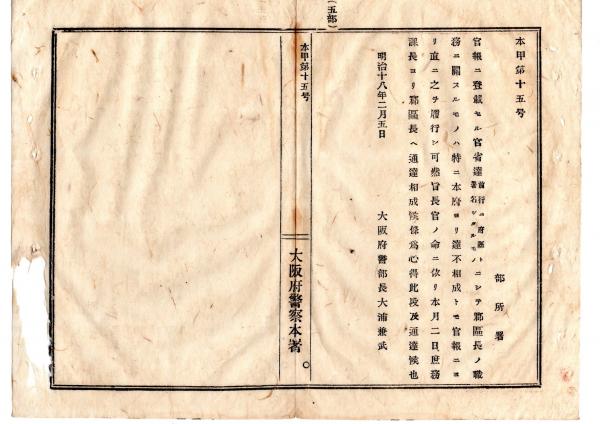 本甲第十五号
部所署
官報ニ登載セル官省達前行ニ府縣トニシテ郡區長ノ職
署名シタルモノ
務ニ關スルモノハ特ニ本府ヨリ達不相成トモ官報ニヨ
リ直ニ之ヲ履行シ可然旨長官ノ命ニ依リ本月二日庶務
課長ヨリ郡區長ヘ通達相成候條爲心得此段及通達候也
明治十八年二月五日
大阪府警部長大浦兼武
(五部)
本甲第十五号
大阪府警察本署